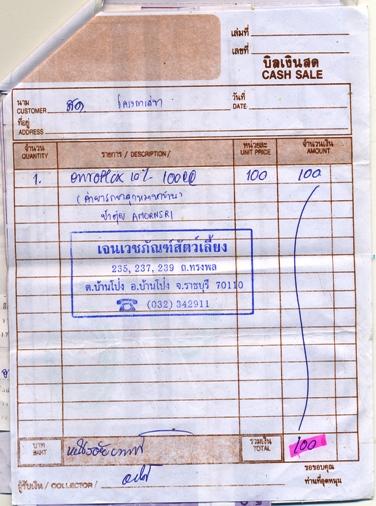 เล่มที่
เลขที่
บิลเงินสด
CASH SALE
นาม
CUSTOMER สด
วันที่
DATE
ที่อยู่
ADDRESS
จำนวน
QUANTITY
รายการ / DESCRIPTION /
หน่วยละ
UNIT PRICE
จำนวนเงิน
AMOUNT
1. 10% 100 100
AMORNSRI
เจนเวชภัณฑ์สัตว์เลี้ยง
235, 237, 239 ถ.ทรงพล
ต.บ้านโป่ง อ.บ้านโป่ง จ.ราชบุรี 70110
☎ (032) 342911
บาท
BAHT หนึ่งร้อยบาท
รวมเงิน
TOTAL 100
ผู้รับเงิน / COLLECTOR /
ขอขอบคุณ
ท่านที่อุดหนุน